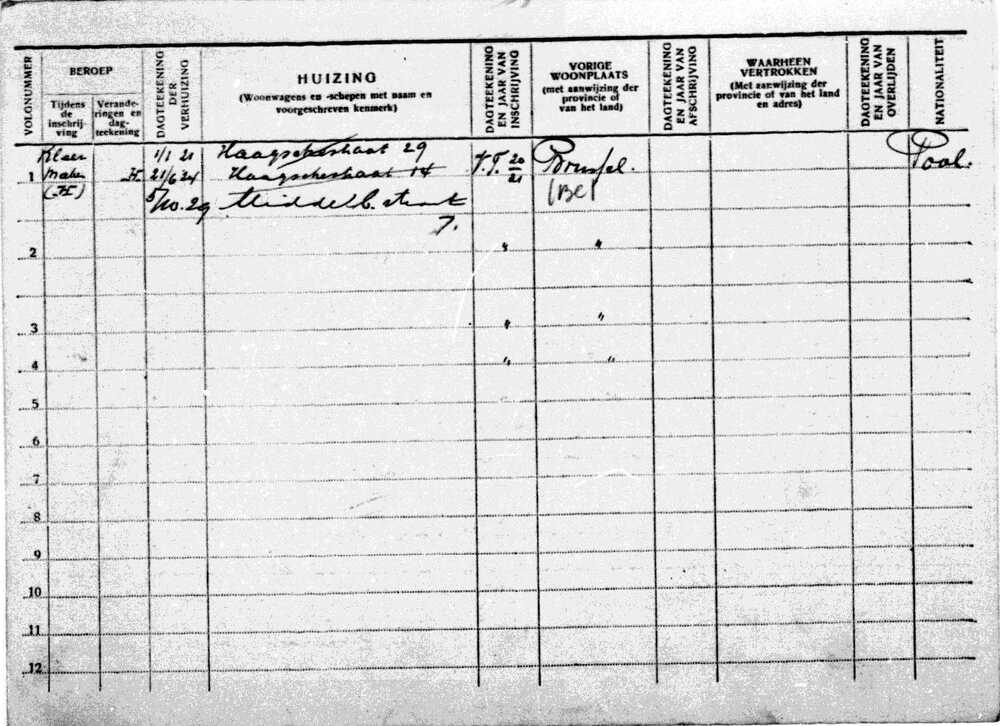 VOLGNUMMER
BEROEP
Tijdens de inschrij- ving
Verande- ringen en dag- teekening
DAGTEEKENING DER VERHUIZING
HUIZING
(Woonwagens en -schepen met naam en
voorgeschreven kenmerk)
DAGTEEKENING EN JAAR VAN INSCHRIJVING
VORIGE WOONPLAATS
(met aanwijzing der provincie of van het land)
DAGTEEKENING EN JAAR VAN AFSCHRIJVING
WAARHEEN VERTROKKEN
(Met aanwijzing der provincie of van het land en adres)
DAGTEEKENING EN JAAR VAN OVERLIJDEN
NATIONALITEIT
Kleer 1/1 21 Haagschestraat 29
1 maker H 21/6 24 Haagschestraat 14 V.T. 20/21 Brussel. Pool.
(H) 5/10.29 Middelb. straat (Be)
7.
2 " "
3 " "
4 " "
5
6
7
8
9
10
11
12